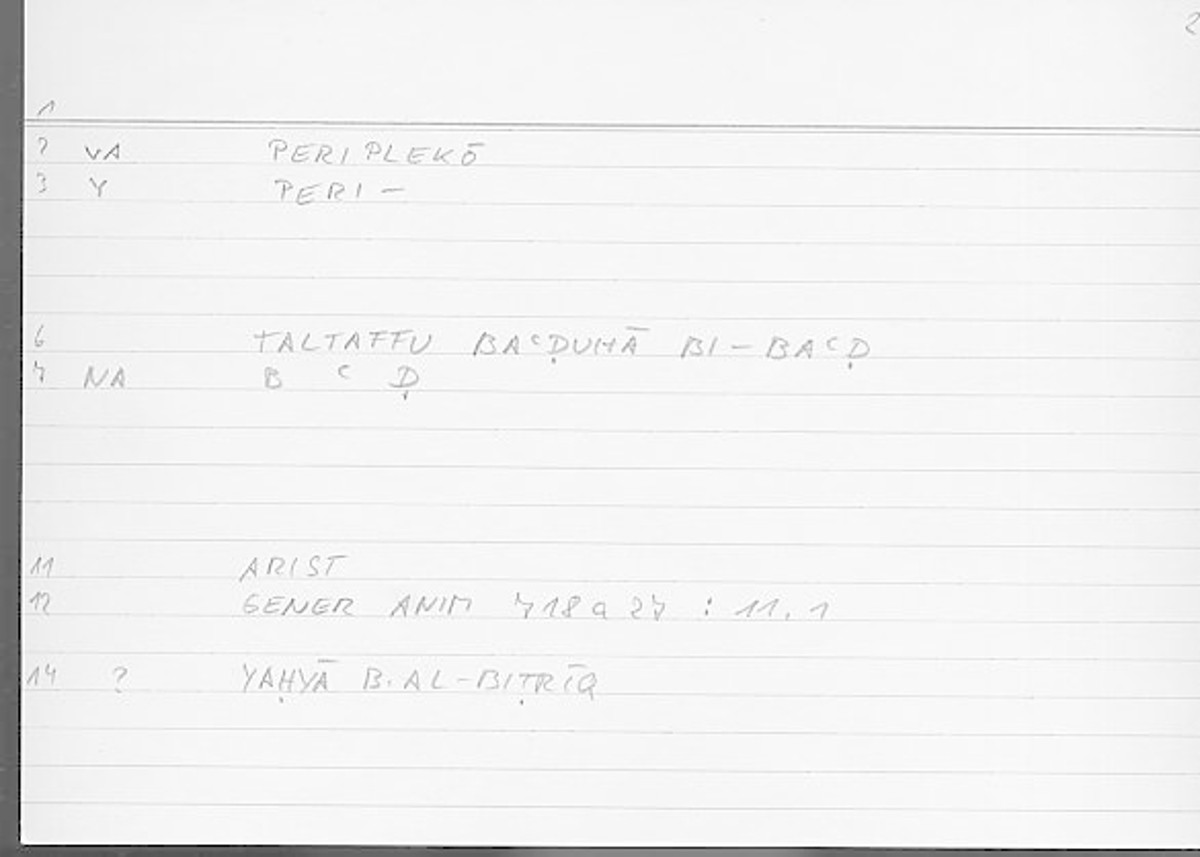 2
1
2 VA PERIPLEKŌ
3 Y PERI –
6 TALTAFFU BAᶜḌUHĀ BI – BAᶜḌ
7 NA B ᶜ Ḍ
11 ARIST
12 GENER ANIM 718 a 27 : 11, 1
14 ? YAḤYĀ B. AL-BIṬRĪQ